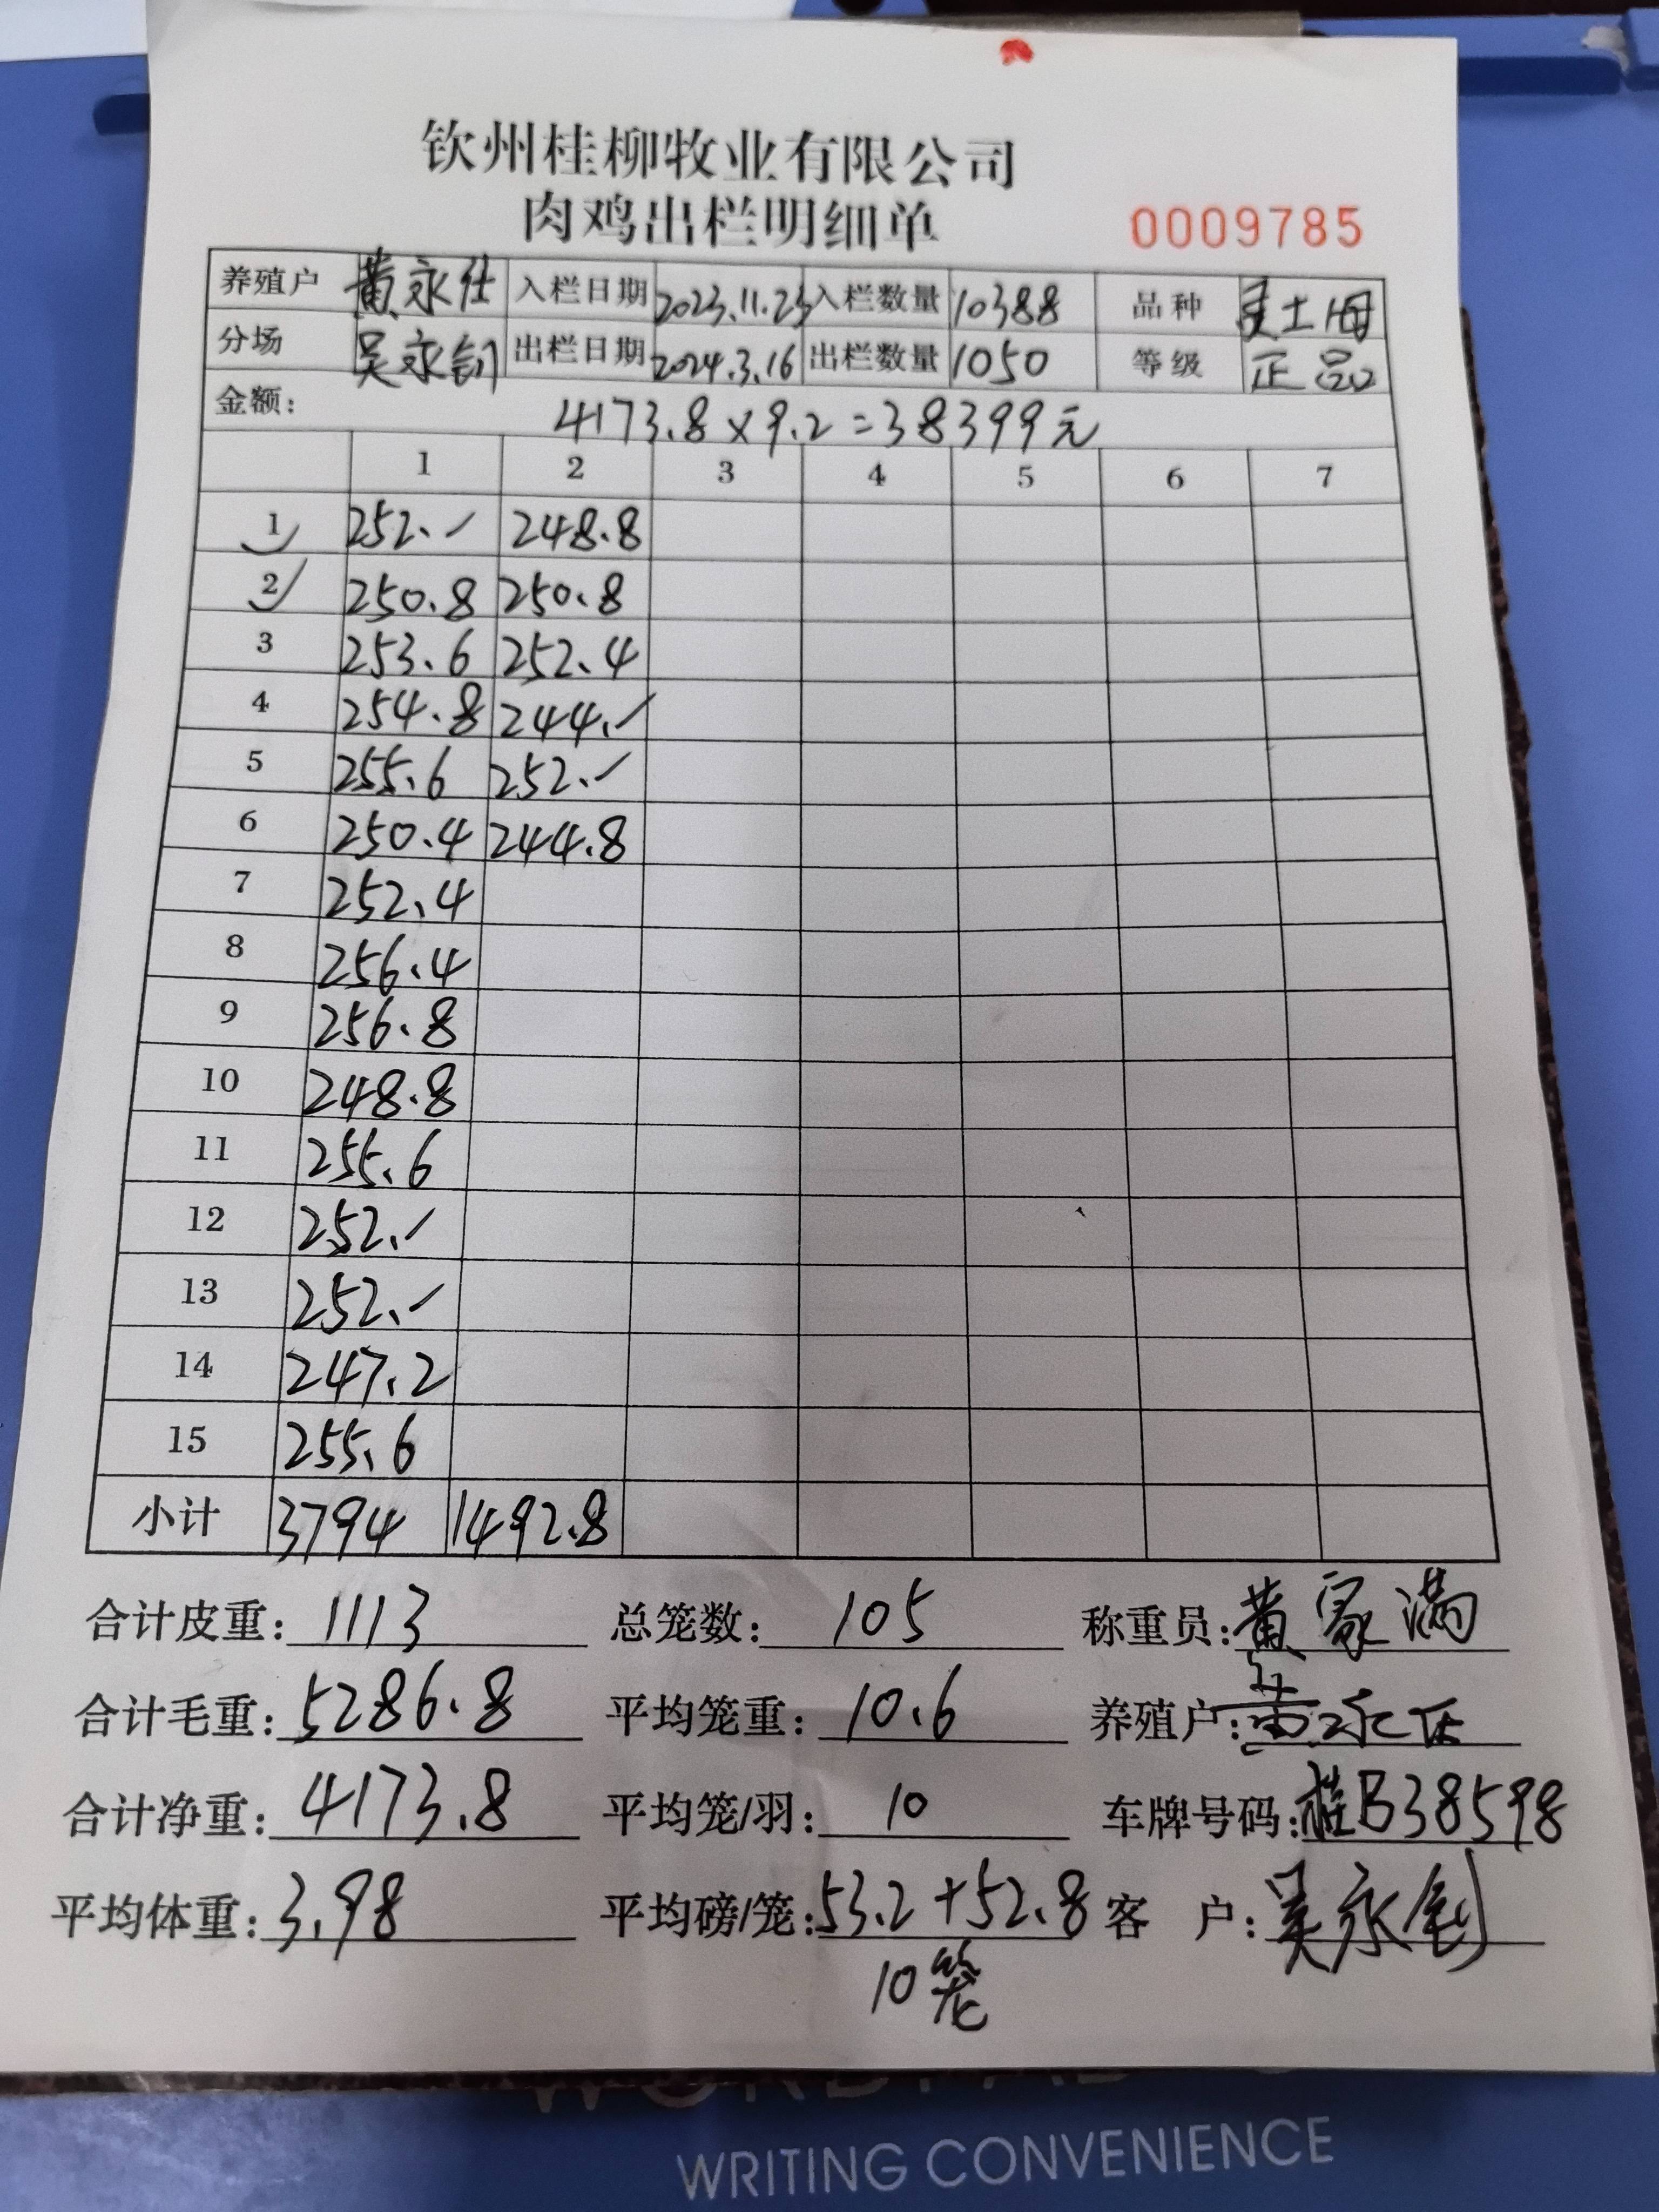 钦州桂柳牧业有限公司
肉鸡出栏明细单 0009785
养殖户 黄永仕 入栏日期 2023.11.23 入栏数量 10388 品种 土母
分场 吴永钊 出栏日期 2024.3.16 出栏数量 1050 等级 正品
金额: 4173.8×9.2=38399元
1 2 3 4 5 6 7
1 252.- 248.8
2 250.8 250.8
3 253.6 252.4
4 254.8 244.-
5 255.6 252.-
6 250.4 244.8
7 252.4
8 256.4
9 256.8
10 248.8
11 255.6
12 252.-
13 252.-
14 247.2
15 255.6
小计 3794 1492.8
合计皮重: 1113 总笼数: 105 称重员: 黄家满
合计毛重: 5286.8 平均笼重: 10.6 养殖户: 黄永仕
合计净重: 4173.8 平均笼/羽: 10 车牌号码: 桂B38598
平均体重: 3.98 平均磅/笼: 53.2+52.8 客 户: 吴永钊
10笼
WRITING CONVENIENCE